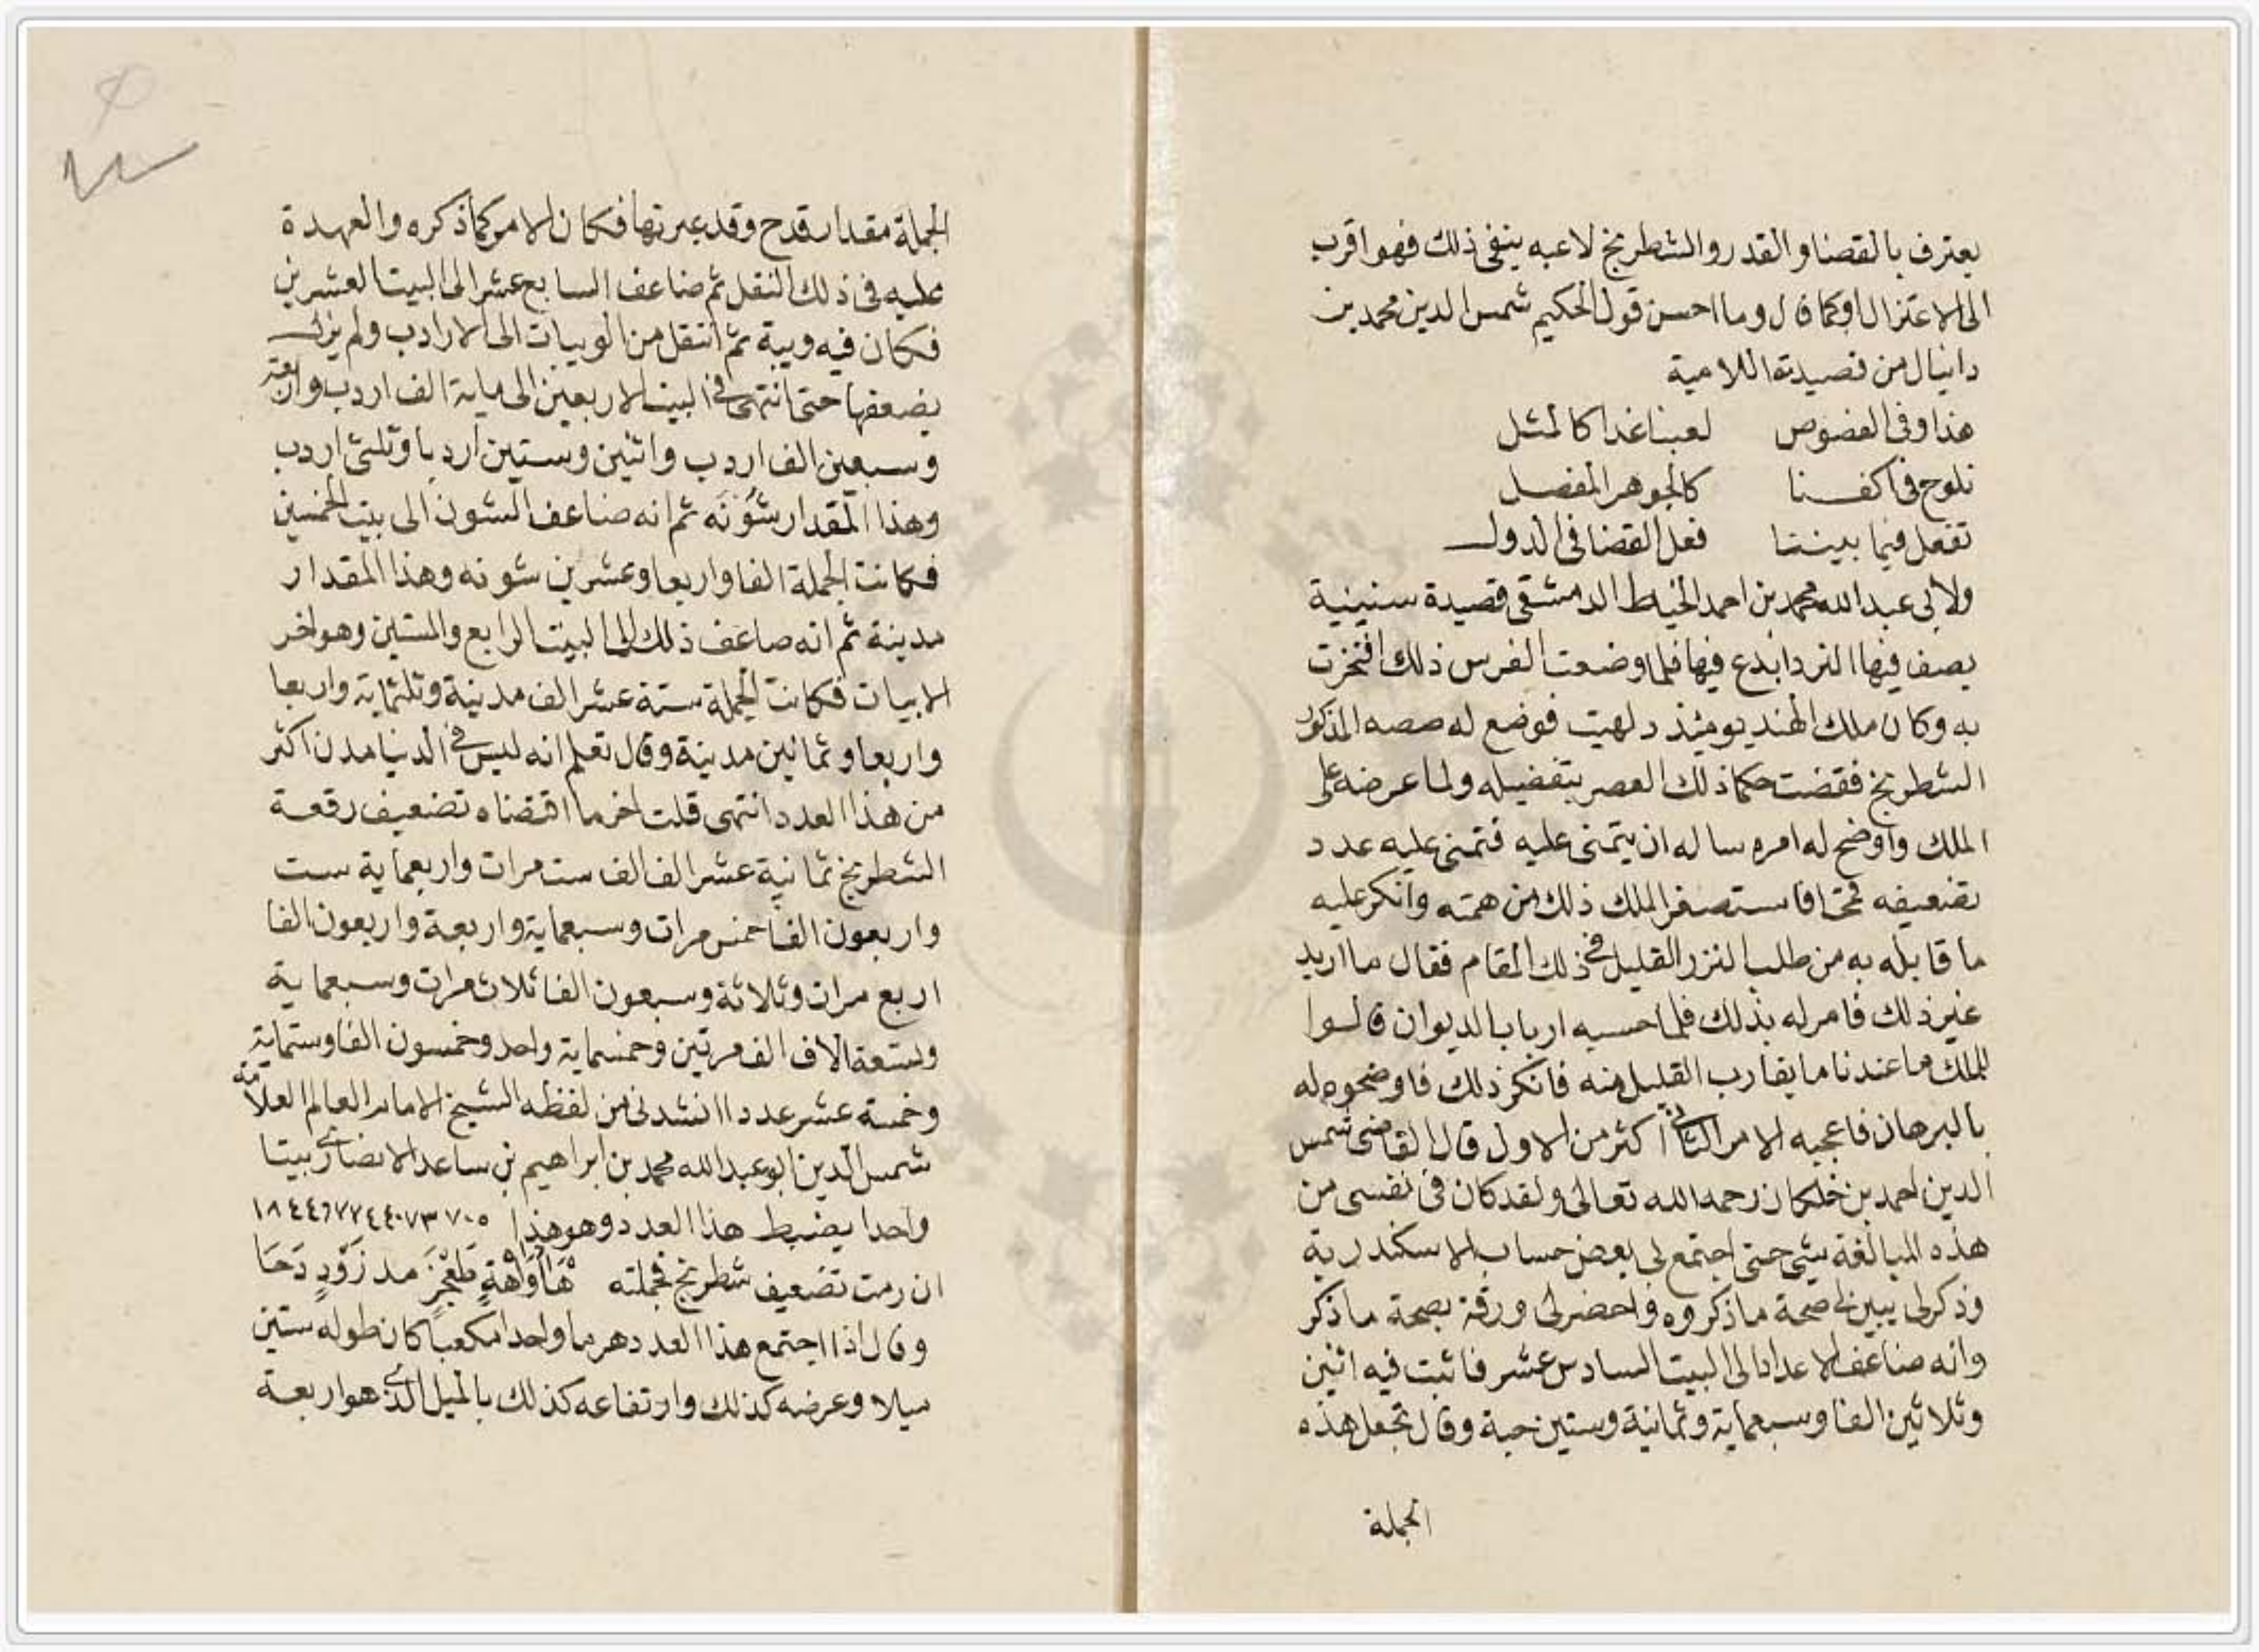 يعترف بالقضا والقدر والشطرنج لاعبه ينفى ذلك فهو اقرب
الى الاعتزال او كما قال وما احسن قول الحكيم شمس الدين محمد بن
دانيال من قصيدته اللامية
هذا وفى الفصوص لعبنا غدا كالمثل
تلوح فى اكفنا كالجوهر المفصل
تفعل فيما بيننا فعل القضا فى الدول
ولابى عبد الله محمد بن احمد الخياط الدمشقى قصيدة سنينية
يصف فيها النرد ابدع فيها فلما وضعت الفرس ذلك افتخرت
به وكان ملك الهند يومئذ دلهيت فوضع له صصه المذكور
الشطرنج فقضت حكما ذلك العصر بتفضيله ولما عرضه على
الملك واوضح له امره ساله ان يتمنى عليه فتمنى عليه عدد
تضعيفه قمحا فاستصغر الملك ذلك من همته وانكر عليه
ما قابله به من طلب النزر القليل فى ذلك المقام فقال ما اريد
غير ذلك فامر له بذلك فلما حسبه ارباب الديوان قالوا
للملك ما عندنا ما يقارب القليل منه فانكر ذلك فاوضحوه له
بالبرهان فاعجبه الامر الثانى اكثر من الاول قال القاضى شمس
الدين احمد بن خلكان رحمه الله تعالى ولقد كان فى نفسى من
هذه المبالغة شى حتى اجتمع لى بعض حساب الاسكندرية
وذكر لى يبين لى صحة ما ذكروه واحضر لى ورقة بصحة ما ذكر
وانه ضاعف الاعداد الى البيت السادس عشر فاثبت فيه اثنين
وثلاثين الفا وسبعماية وثمانية وستين حبة وقال تجعل هذه
الجملة
الجملة مقدار قدح وقد عبرتها فكان الامر كما ذكره والعهدة
عليه فى ذلك النقل ثم ضاعف السابع عشر الى البيت العشرين
فكان فيه ويبة ثم انتقل من الويبات الى الارادب ولم يزل
يضعفها حتى انتهى فى البيت الاربعين الى ماية الف اردب واربعة
وسبعين الف اردب واثنين وستين اردبا وثلثى اردب
وهذا المقدار شونه ثم انه ضاعف الشون الى بيت الخمسين
فكانت الجملة الفا واربعا وعشرين شونه وهذا المقدار
مدينة ثم انه ضاعف ذلك الى البيت الرابع والستين وهو اخر
الابيات فكانت الجملة ستة عشر الف مدينة وثلثماية واربعا
واربعا وثمانين مدينة وقال تعلم انه ليس فى الدنيا مدن اكثر
من هذا العدد انتهى قلت اخر ما اقتضاه تضعيف رقعة
الشطرنج ثمانية عشر الف الف ست مرات واربعماية ست
واربعون الفا خمس مرات وسبعماية واربعة واربعون الفا
اربع مرات وثلاثة وسبعون الفا ثلاث مرات وسبعماية
وتسعة الاف الف مرتين وخمسماية واحد وخمسون الفا وستماية
وخمسة عشر عددا انشدنى من لفظه الشيخ الامام العالم العلامة
شمس الدين ابو عبد الله محمد بن ابراهيم بن ساعد الانصارى بيتا
واحدا يضبط هذا العدد وهو هذا
ان رمت تضعيف شطرنج فجملته مد زود دحا
وقال اذا اجتمع هذا العدد هرما واحدا مكعبا كان طوله ستين
ميلا وعرضه كذلك وارتفاعه كذلك بالميل الذى هو اربعة